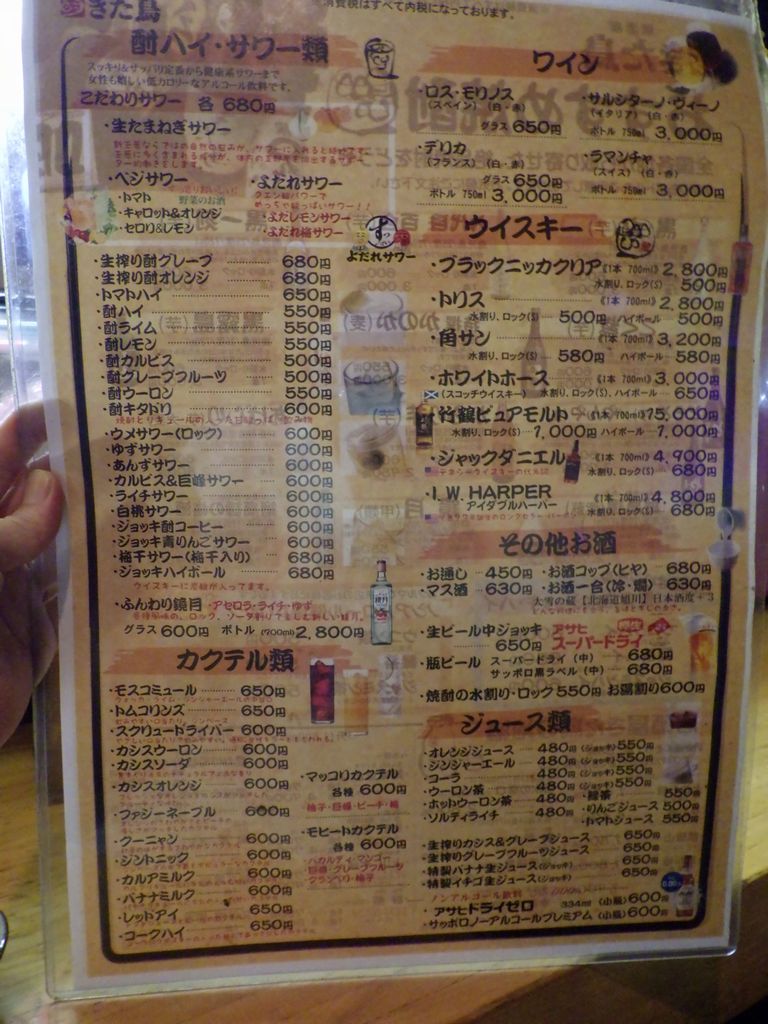 きた鳥
消費税はすべて内税になっております。
酎ハイ・サワー類
スッキリ&サッパリ定番から健康系サワーまで
女性も嬉しい低カロリーなアルコール飲料です。
こだわりサワー 各680円
・生たまねぎサワー
・ベジサワー
野菜のお酒
・トマト
・キャロット&オレンジ
・セロリ&レモン
・よだれサワー
クエン酸パワーで
めっちゃ酸っぱいサワー!!
・よだレモンサワー
・よだれ梅サワー
よだれサワー
・生搾り酎グレープ 680円
・生搾り酎オレンジ 680円
・トマトハイ 650円
・酎ハイ 550円
・酎ライム 550円
・酎レモン 550円
・酎カルピス 500円
・酎グレープフルーツ 500円
・酎ウーロン 550円
・酎キタドリ 600円
・ウメサワー(ロック) 600円
・ゆずサワー 600円
・あんずサワー 600円
・カルピス&巨峰サワー 600円
・ライチサワー 600円
・白桃サワー 600円
・ジョッキ酎コーヒー 600円
・ジョッキ青りんごサワー 600円
・梅干サワー(梅干入り) 680円
・ジョッキハイボール 680円
ウイスキーに炭酸が入ってます。
・ふんわり鏡月 ・アセロラ・ライチ・ゆず
グラス600円 ボトル(700ml)2,800円
カクテル類
・モスコミュール 650円
・トムコリンズ 650円
・スクリュードライバー 600円
・カシスウーロン 600円
・カシスソーダ 600円
・カシスオレンジ 600円
・ファジーネーブル 600円
・クーニャン 600円
・ジントニック 600円
・カルアミルク 600円
・バナナミルク 600円
・レッドアイ 650円
・コークハイ 650円
・マッコリカクテル
各種 600円
柚子・巨峰・ピーチ・梅
・モヒートカクテル
各種 600円
バカルディ・マンゴー
巨峰・グレープフルーツ
クランベリー・柚子
ワイン
・ロス・モリノス
(スペイン) (白・赤)
グラス 650円
・サルシターノ・ヴィーノ
(イタリア) (白・赤)
ボトル 750ml 3,000円
・デリカ
(フランス) (白・赤)
グラス 650円
ボトル 750ml 3,000円
・ラマンチャ
(スイス) (白・赤)
ボトル 750ml 3,000円
ウイスキー
・ブラックニッカクリア《1本 700ml》2,800円
水割り、ロック(S) 500円
・トリス 《1本 700ml》2,800円
水割り、ロック(S) 500円 ハイボール 500円
・角サン 《1本 700ml》3,200円
水割り、ロック(S) 580円 ハイボール 580円
・ホワイトホース 《1本 700ml》3,000円
(スコッチウイスキー) 水割り、ロック(S)、ハイボール 650円
・竹鶴ピュアモルト 《1本 700ml》15,000円
水割り、ロック(S) 1,000円 ハイボール 1,000円
・ジャックダニエル 《1本 700ml》4,900円
水割り、ロック(S) 680円
・I.W. HARPER 《1本 700ml》4,800円
アイダブルハーパー 水割り、ロック(S) 680円
その他お酒
・お通し 450円 ・お酒コップ(ヒヤ) 680円
・マス酒 630円 ・お酒一合(冷・燗) 630円
大雪の蔵【北海道旭川】日本酒度+3
・生ビール中ジョッキ 650円
アサヒ
スーパードライ
・瓶ビール スーパードライ(中) 680円
サッポロ黒ラベル(中) 680円
・焼酎の水割り・ロック550円 お湯割り600円
ジュース類
・オレンジジュース 480円 (ジョッキ)550円
・ジンジャーエール 480円 (ジョッキ)550円
・コーラ 480円 (ジョッキ)550円
・ウーロン茶 480円 (ジョッキ)550円
・ホットウーロン茶 480円
・ソルティライチ 480円
・緑茶 550円
・りんごジュース 500円
・トマトジュース 550円
・生搾りカシス&グレープジュース 650円
・生搾りグレープフルーツジュース 650円
・特製バナナ生ジュース(ジョッキ) 650円
・特製イチゴ生ジュース(ジョッキ) 650円
ノンアルコール飲料
・アサヒドライゼロ 334ml (小瓶)600円
・サッポロノーアルコールプレミアム (小瓶)600円